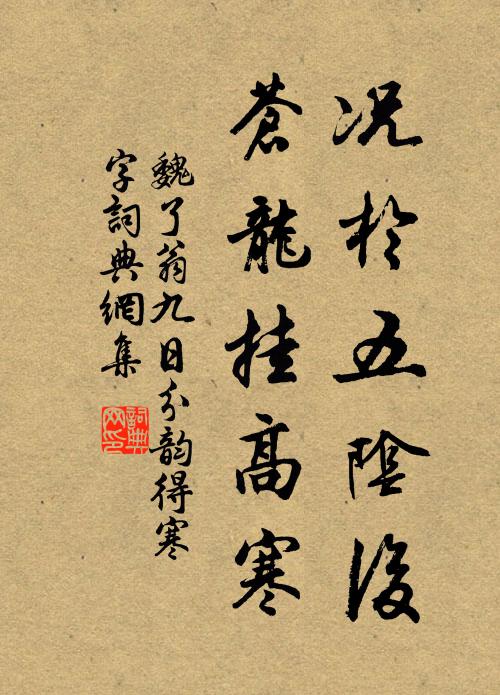 況於五陰後
蒼龍挂高寒
魏了翁九日分韵得寒
字詞典網集
詞典网印